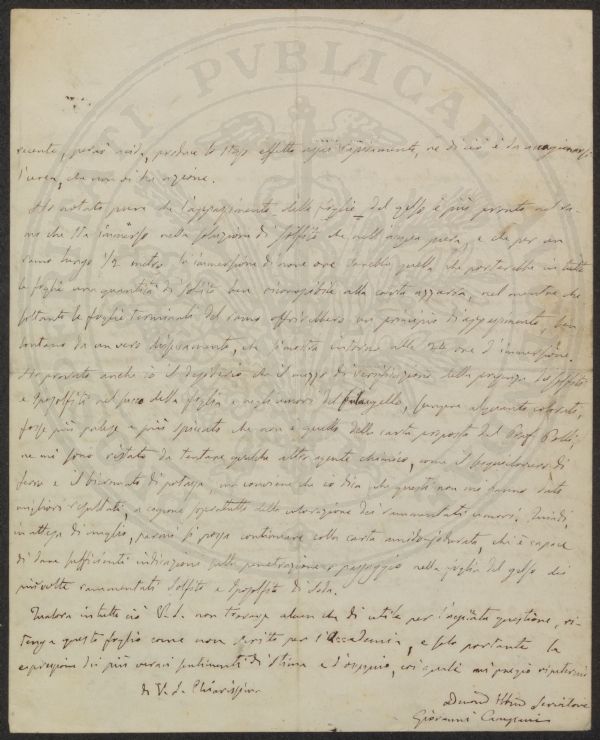 recente, però acida, produce lo stesso effetto assai rapidamente, ne di ciò è da
l'urea, che non vi ha azione.
Ho notato pure che l'appassimento delle foglie del gelso è più pronto nel ra-
mo che sta immerso nella soluzione di solfito che nell'acqua pura, e che per un
ramo lungo 1/2 metro la immersione di nove ore sarebbe quella che porterebbe in tutte
le foglie una quantità di solfito ben riconoscibile alla carta azzurra, nel mentre che
soltanto le foglie terminali del ramo offrirebbero un principio di appassimento, ben
lontano da un vero disseccamento, che si mostra intorno alle 24 ore d'immersione.
Ho provato anche io il desiderio che il mezzo di verificazione della presenza dei solfiti
e iposolfiti nel succo della foglia e negli umori del filugello, sempre alquanto colorato,
fosse più palese e più spiccato che non è quello della carta proposta del Prof. Polli;
ne mi sono ristato da tentare qualche altro agente chimico, come il sesquicloruro di
ferro e il bicromato di potassa, ma conviene che io dica che questi non mi hanno dato
migliori risultati, a cagione soprattutto della colorazione dei rammentati umori. Quindi,
in attesa di meglio, parmi si possa continuare colla carta amido-jodurata, chè è capace
di dare sufficienti indicazioni sulla penetrazione e passaggio nella foglia del gelso dei
più volte rammentati solfito e iposolfito di soda.
Qualora in tutto ciò V. S. non trovasse alcun che di utile per l'agitata questione, ri-
tenga questo foglio come non scritto per l'Accademia, e solo portante la
espressione dei più veraci sentimenti di stima e d'ossequio, coi quali mi pregio ripetermi
di V. S. Chiarissima
Devmo Obbmo Servitore
Giovanni Campani
PVBLICAE